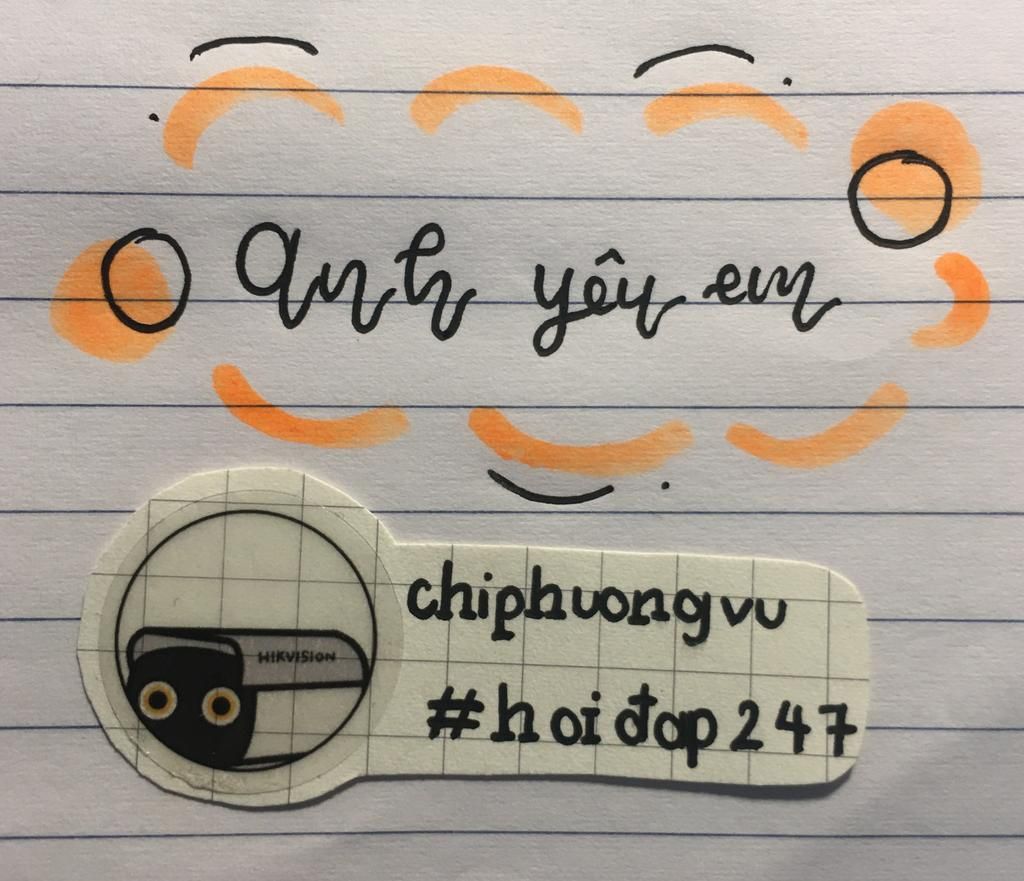 anh yêu em
HIKVISION
chiphuongvu
#hoiđap247